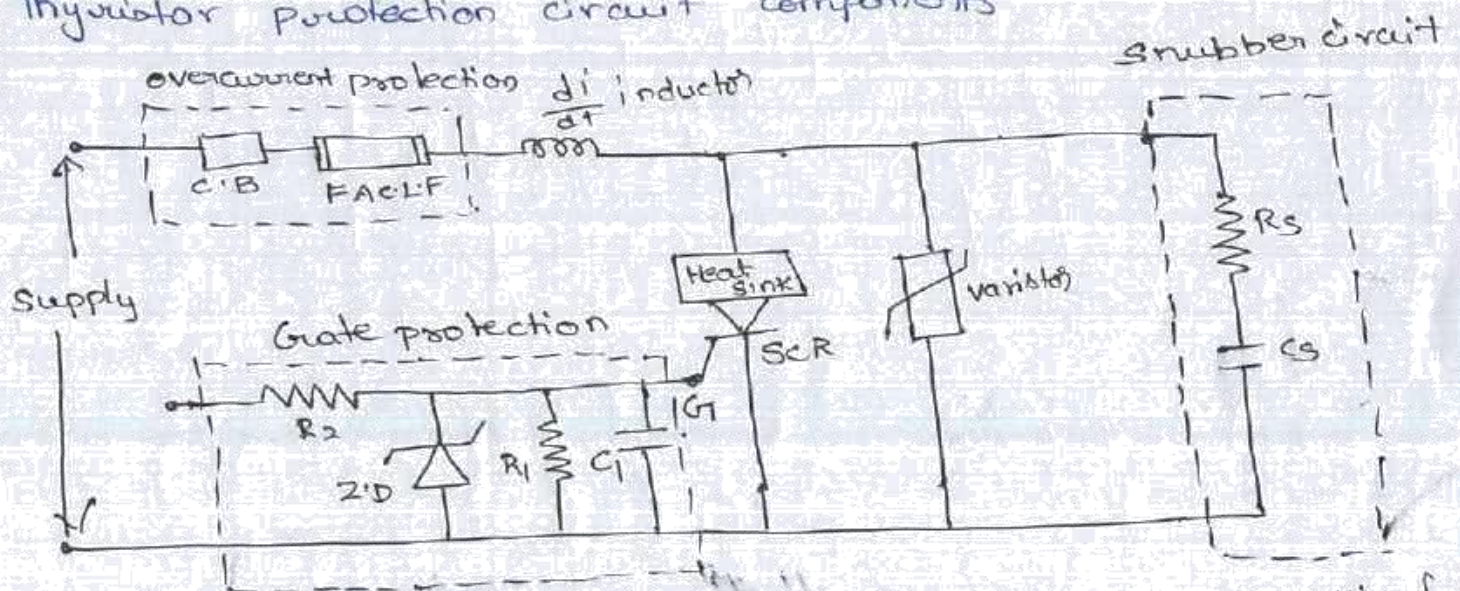 Thyristor protection circuit components
Snubber circuit
overcurrent protection
di
dt
inductor
C.B
F.A.C.L.F
Supply
Heat
Sink
SCR
varistor
Rs
Cs
Gate protection
R2
Z.D
R1
C1
G